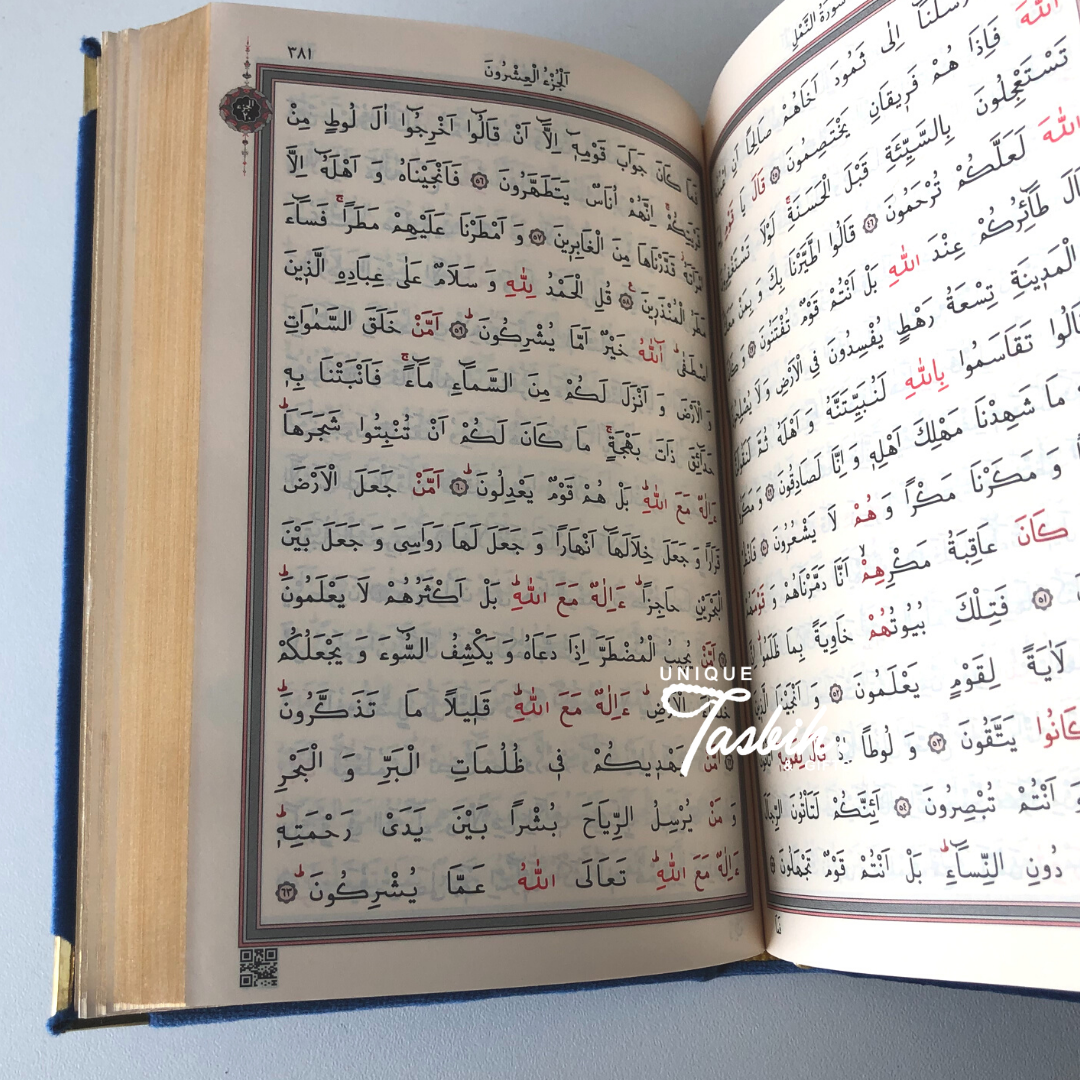 سُورَةُ النَّمْلِ
اِلٰى ثَمُودَ اَخَاهُمْ صَالِحًا اَنِ
اللّٰهَ فَاِذَا هُمْ فَر۪يقَانِ يَخْتَصِمُونَ ٤٥ قَالَ يَا قَوْمِ
تَسْتَعْجِلُونَ بِالسَّيِّئَةِ قَبْلَ الْحَسَنَةِۚ لَوْلَا تَسْتَغْفِرُونَ
اللّٰهَ لَعَلَّكُمْ تُرْحَمُونَ ٤٦ قَالُوا اطَّيَّرْنَا بِكَ وَ بِمَنْ
طَٓائِرُكُمْ عِنْدَ اللّٰهِ بَلْ اَنْتُمْ قَوْمٌ تُفْتَنُونَ ٤٧
الْمَد۪ينَةِ تِسْعَةُ رَهْطٍ يُفْسِدُونَ فِي الْاَرْضِ وَ لَا
تَقَاسَمُوا بِاللّٰهِ لَنُبَيِّتَنَّهُ وَ اَهْلَهُ ثُمَّ
مَا شَهِدْنَا مَهْلِكَ اَهْلِه۪ وَ اِنَّا لَصَادِقُونَ ٤٩
وَ مَكَرْنَا مَكْرًا وَ هُمْ لَا يَشْعُرُونَ ٥٠
كَانَ عَاقِبَةُ مَكْرِهِمْۙ اَنَّا دَمَّرْنَاهُمْ وَ
٥١ فَتِلْكَ بُيُوتُهُمْ خَاوِيَةً بِمَا ظَلَمُوا
لَاٰيَةً لِقَوْمٍ يَعْلَمُونَ ٥٢ وَ اَنْجَيْنَا
كَانُوا يَتَّقُونَ ٥٣ وَ لُوطًا اِذْ قَالَ لِقَوْمِه۪
وَ اَنْتُمْ تُبْصِرُونَ ٥٤ اَئِنَّكُمْ لَتَأْتُونَ الرِّجَالَ
دُونِ النِّسَٓاءِۜ بَلْ اَنْتُمْ قَوْمٌ تَجْهَلُونَ ٥٥
اَلْجُزْءُ الْعِشْرُونَ ٣٨١
الجزء ٢٠
فَمَا كَانَ جَوَابَ قَوْمِه۪ٓ اِلَّٓا اَنْ قَالُٓوا اَخْرِجُٓوا اٰلَ لُوطٍ مِنْ
قَرْيَتِكُمْۚ اِنَّهُمْ اُنَاسٌ يَتَطَهَّرُونَ ٥٦ فَاَنْجَيْنَاهُ وَ اَهْلَهُٓ اِلَّا
امْرَاَتَهُۘ قَدَّرْنَاهَا مِنَ الْغَابِر۪ينَ ٥٧ وَ اَمْطَرْنَا عَلَيْهِمْ مَطَرًاۚ فَسَٓاءَ
مَطَرُ الْمُنْذَر۪ينَ ٥٨ قُلِ الْحَمْدُ لِلّٰهِ وَ سَلَامٌ عَلٰى عِبَادِهِ الَّذ۪ينَ
اصْطَفٰىۜ آللّٰهُ خَيْرٌ اَمَّا يُشْرِكُونَۜ ٥٩ اَمَّنْ خَلَقَ السَّمٰوَاتِ
وَ الْاَرْضَ وَ اَنْزَلَ لَكُمْ مِنَ السَّمَٓاءِ مَٓاءًۚ فَاَنْبَتْنَا بِه۪
حَدَٓائِقَ ذَاتَ بَهْجَةٍۚ مَا كَانَ لَكُمْ اَنْ تُنْبِتُوا شَجَرَهَاۜ
ءَاِلٰهٌ مَعَ اللّٰهِۜ بَلْ هُمْ قَوْمٌ يَعْدِلُونَۜ ٦٠ اَمَّنْ جَعَلَ الْاَرْضَ
قَرَارًا وَ جَعَلَ خِلَالَهَٓا اَنْهَارًا وَ جَعَلَ لَهَا رَوَاسِىَ وَ جَعَلَ بَيْنَ
الْبَحْرَيْنِ حَاجِزًاۜ ءَاِلٰهٌ مَعَ اللّٰهِۜ بَلْ اَكْثَرُهُمْ لَا يَعْلَمُونَۜ
٦١ اَمَّنْ يُج۪يبُ الْمُضْطَرَّ اِذَا دَعَاهُ وَ يَكْشِفُ السُّٓوءَ وَ يَجْعَلُكُمْ
خُلَفَٓاءَ الْاَرْضِۜ ءَاِلٰهٌ مَعَ اللّٰهِۜ قَل۪يلًا مَا تَذَكَّرُونَۜ
٦٢ اَمَّنْ يَهْد۪يكُمْ ف۪ى ظُلُمَاتِ الْبَرِّ وَ الْبَحْرِ
وَ مَنْ يُرْسِلُ الرِّيَاحَ بُشْرًا بَيْنَ يَدَىْ رَحْمَتِه۪ۜ
ءَاِلٰهٌ مَعَ اللّٰهِۜ تَعَالَى اللّٰهُ عَمَّا يُشْرِكُونَۜ ٦٣
UNIQUE
Tasbih